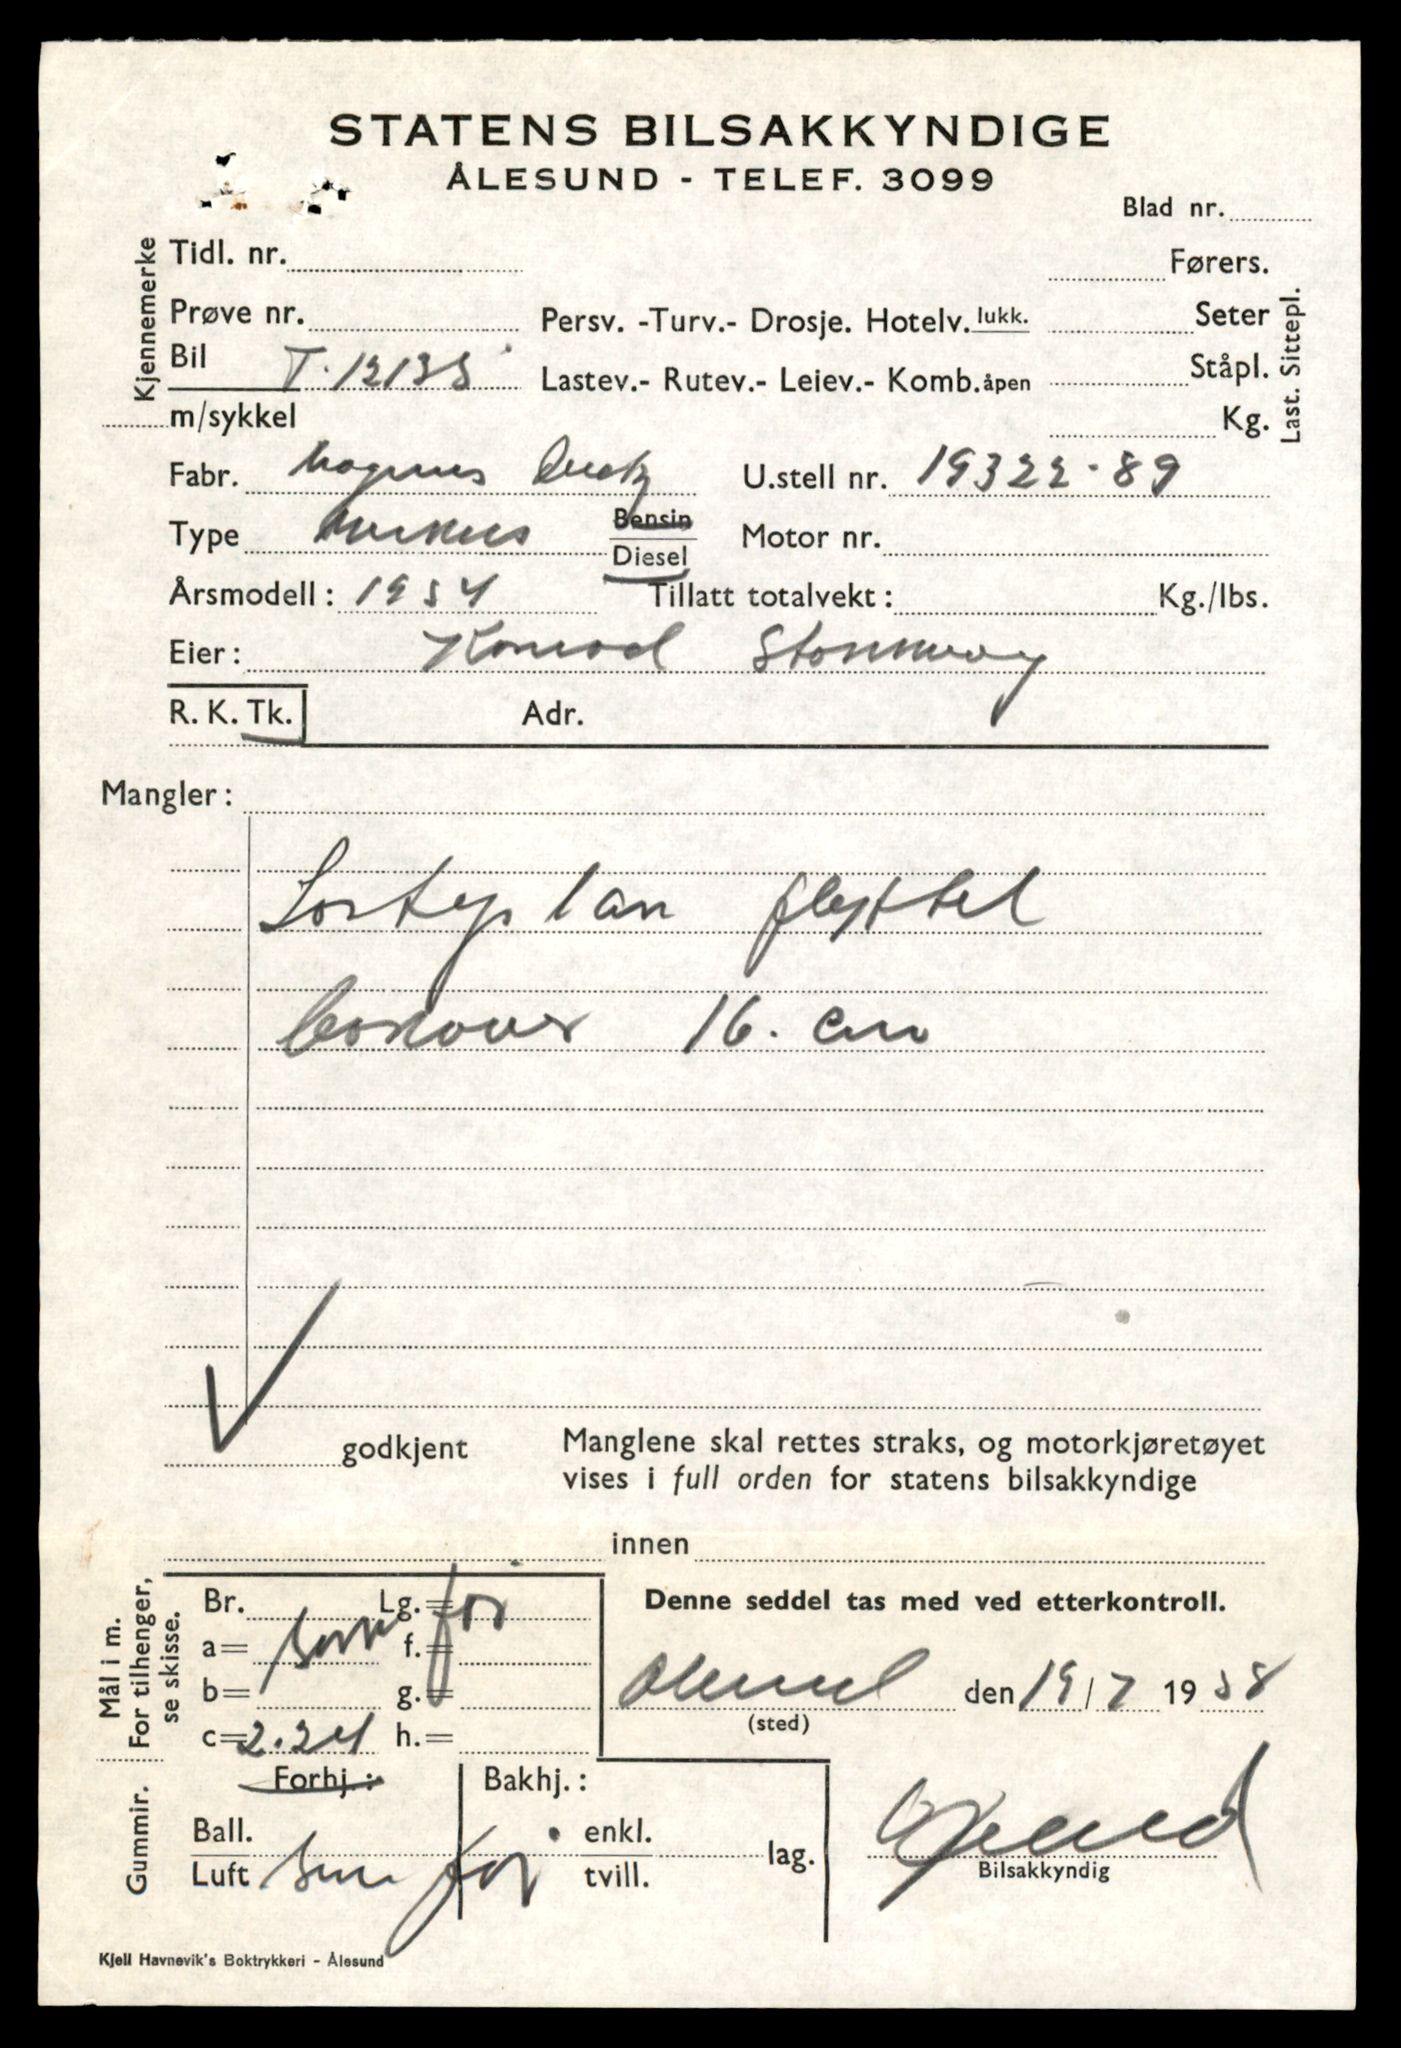 STATENS BILSAKKYNDIGE
ÅLESUND - TELEF. 3099
Blad nr.
Kjennemerke
Tidl. nr.
Førers.
Prøve nr.
Persv. -Turv.- Drosje. Hotelv. lukk.
Seter
Bil T. 12135
Lastev.- Rutev.- Leiev.- Komb. åpen
Ståpl.
m/sykkel
Kg.
Last. Sittepl.
Fabr. Magirus Deutz U.stell nr. 19322-89
Type Merkur Bensin Diesel Motor nr.
Årsmodell: 1954 Tillatt totalvekt: Kg./lbs.
Eier: Konrad
R. K. Tk. Adr.
Mangler:
Lasteplan flyttet
bakover 16. cm
godkjent Manglene skal rettes straks, og motorkjøretøyet
vises i full orden for statens bilsakkyndige
innen
Mål i m.
For tilhenger,
se skisse.
Br. Lg.= før
a= som f.=
b= g.=
c= 2.24 h.=
Denne seddel tas med ved etterkontroll.
Ålesund den 19/7 1958
(sted)
Gummir.
Forhj.: Bakhj.:
Ball. enkl.
lag.
Luft som før tvill.
Bilsakkyndig
Kjell Havnevik's Boktrykkeri - Ålesund